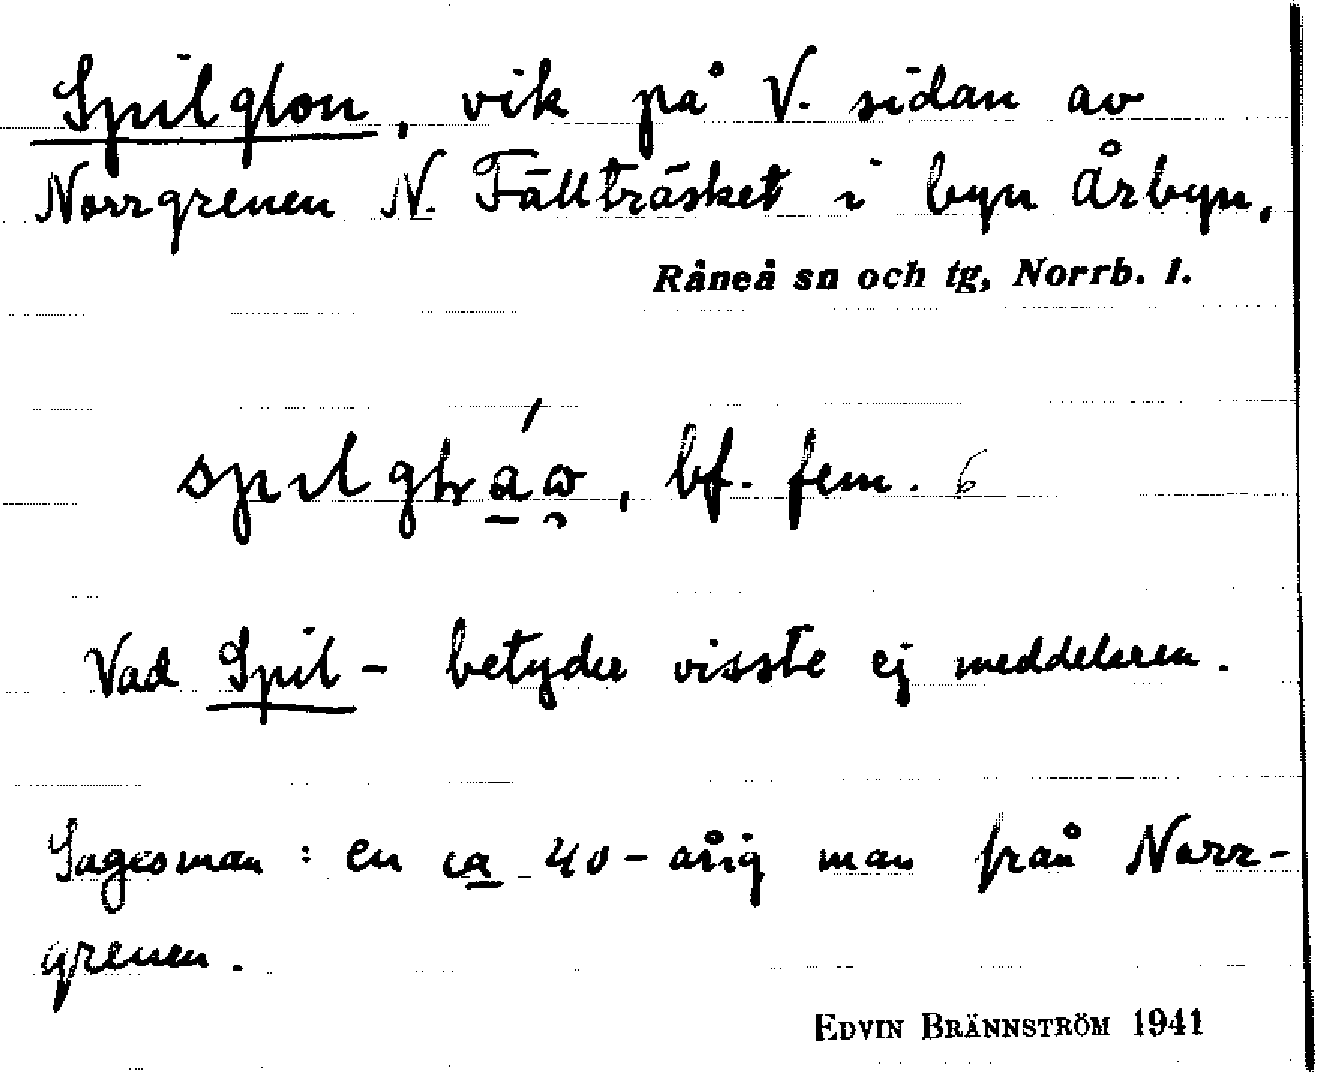 Spilglon, vik på V. sidan av
Norrgrenen N. Fällträsket i byn Årbyn.
Råneå sn och tg, Norrb. l.
bf. fem. 6
Vad Spil- betyder visste ej meddelaren.
Sagesman: en ca 40-årig man från Norr-
grenen.
EDVIN BRÄNNSTRÖM 1941